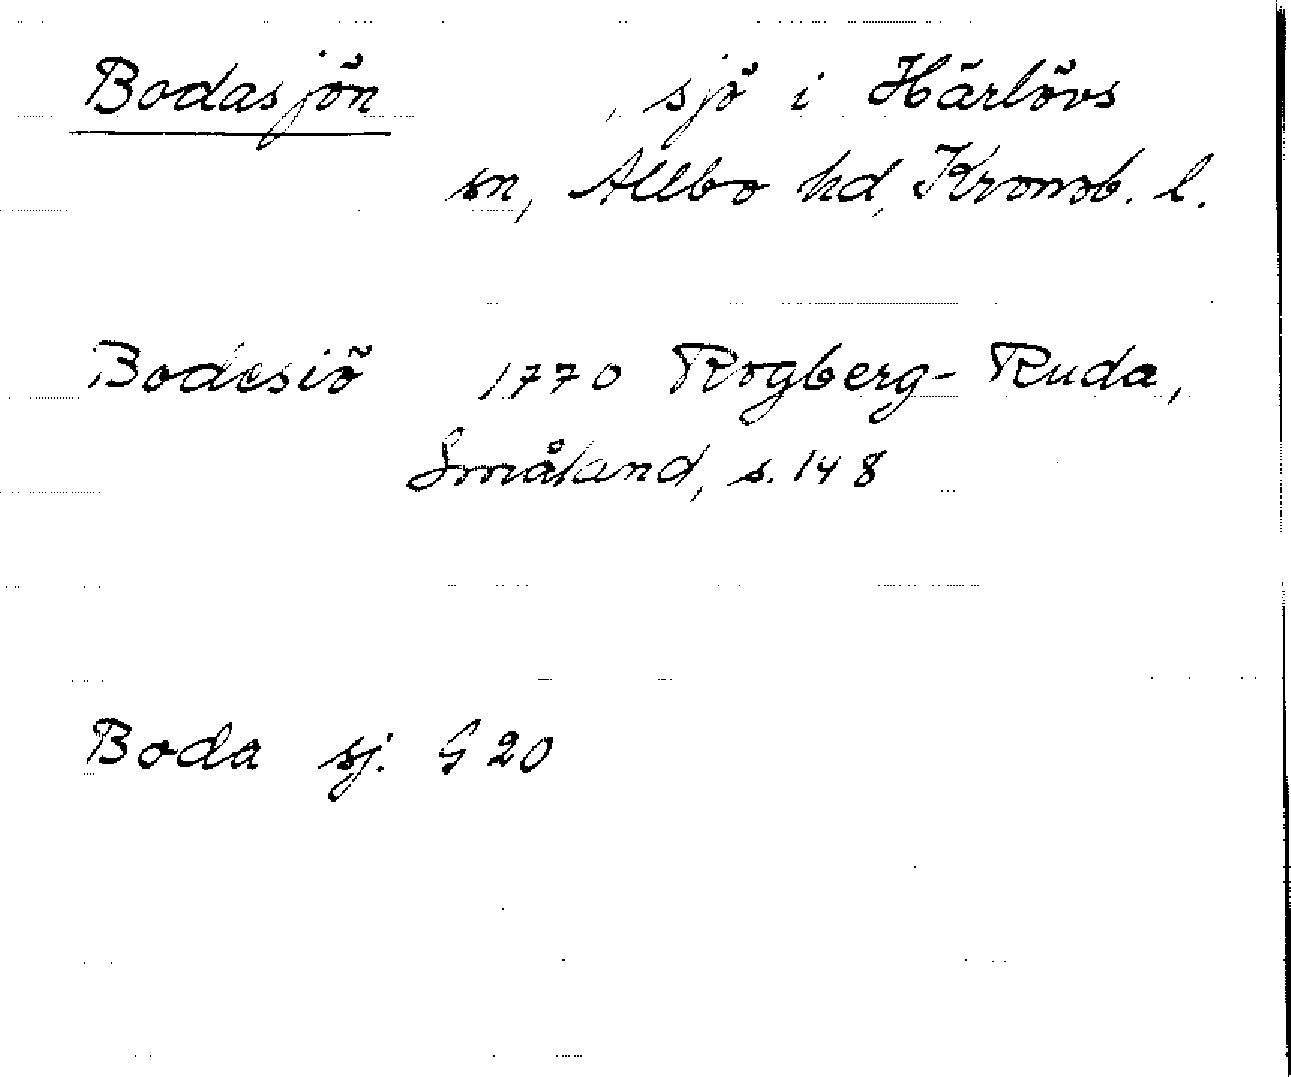 Bodasjön , sjö i Härlövs
sn, Allbo hd, Kronob. l.
Bodesiö 1770 Rogberg-Ruda,
Småland, s. 148
Boda sj. G 20